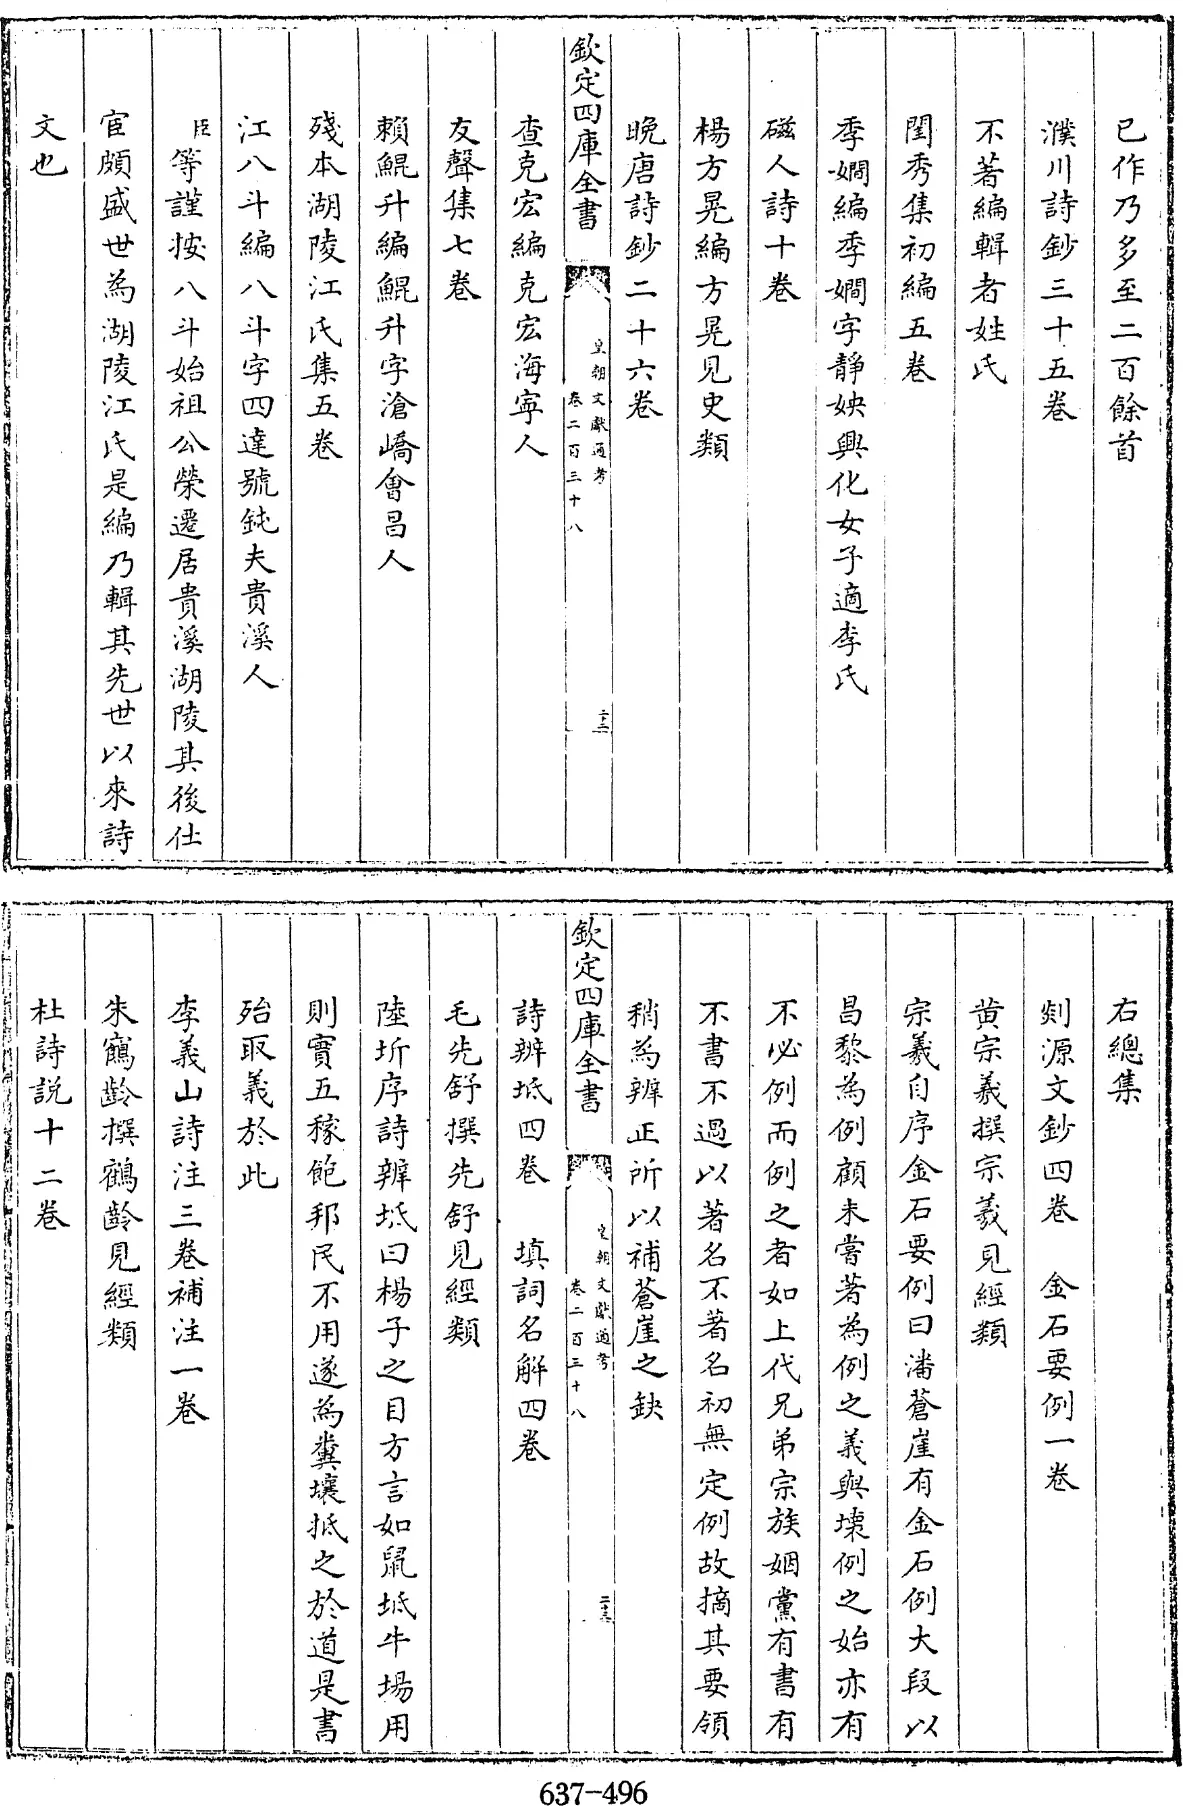 已作乃多至二百餘首
濮川詩鈔三十五卷
不著編輯者姓氏
閨秀集初編五卷
季嫻編季嫻字靜姎興化女子適李氏
磁人詩十卷
楊方晃編方晃見史類
晚唐詩鈔二十六卷
欽定四庫全書
皇朝文獻通考
卷二百三十八
二十二
查克宏編克宏海寧人
友聲集七卷
賴鯤升編鯤升字滄嶠會昌人
殘本湖陵江氏集五卷
江八斗編八斗字四達號鈍夫貴溪人
臣等謹按八斗始祖公榮遷居貴溪湖陵其後仕
宦頗盛世為湖陵江氏是編乃輯其先世以來詩
文也
右總集
剡源文鈔四卷 金石要例一卷
黃宗羲撰宗羲見經類
宗羲自序金石要例曰潘蒼崖有金石例大段以
昌黎為例顧未嘗著為例之義與壞例之始亦有
不必例而例之者如上代兄弟宗族姻黨有書有
不書不過以著名不著名初無定例故摘其要領
稍為辨正所以補蒼崖之缺
欽定四庫全書
皇朝文獻通考
卷二百三十八
二十三
詩辨坻四卷 填詞名解四卷
毛先舒撰先舒見經類
陸圻序詩辨坻曰楊子之目方言如鼠坻牛場用
則實五稼飽邦民不用遂為糞壤抵之於道是書
殆取義於此
李義山詩注三卷補注一卷
朱鶴齡撰鶴齡見經類
杜詩説十二卷
637-496